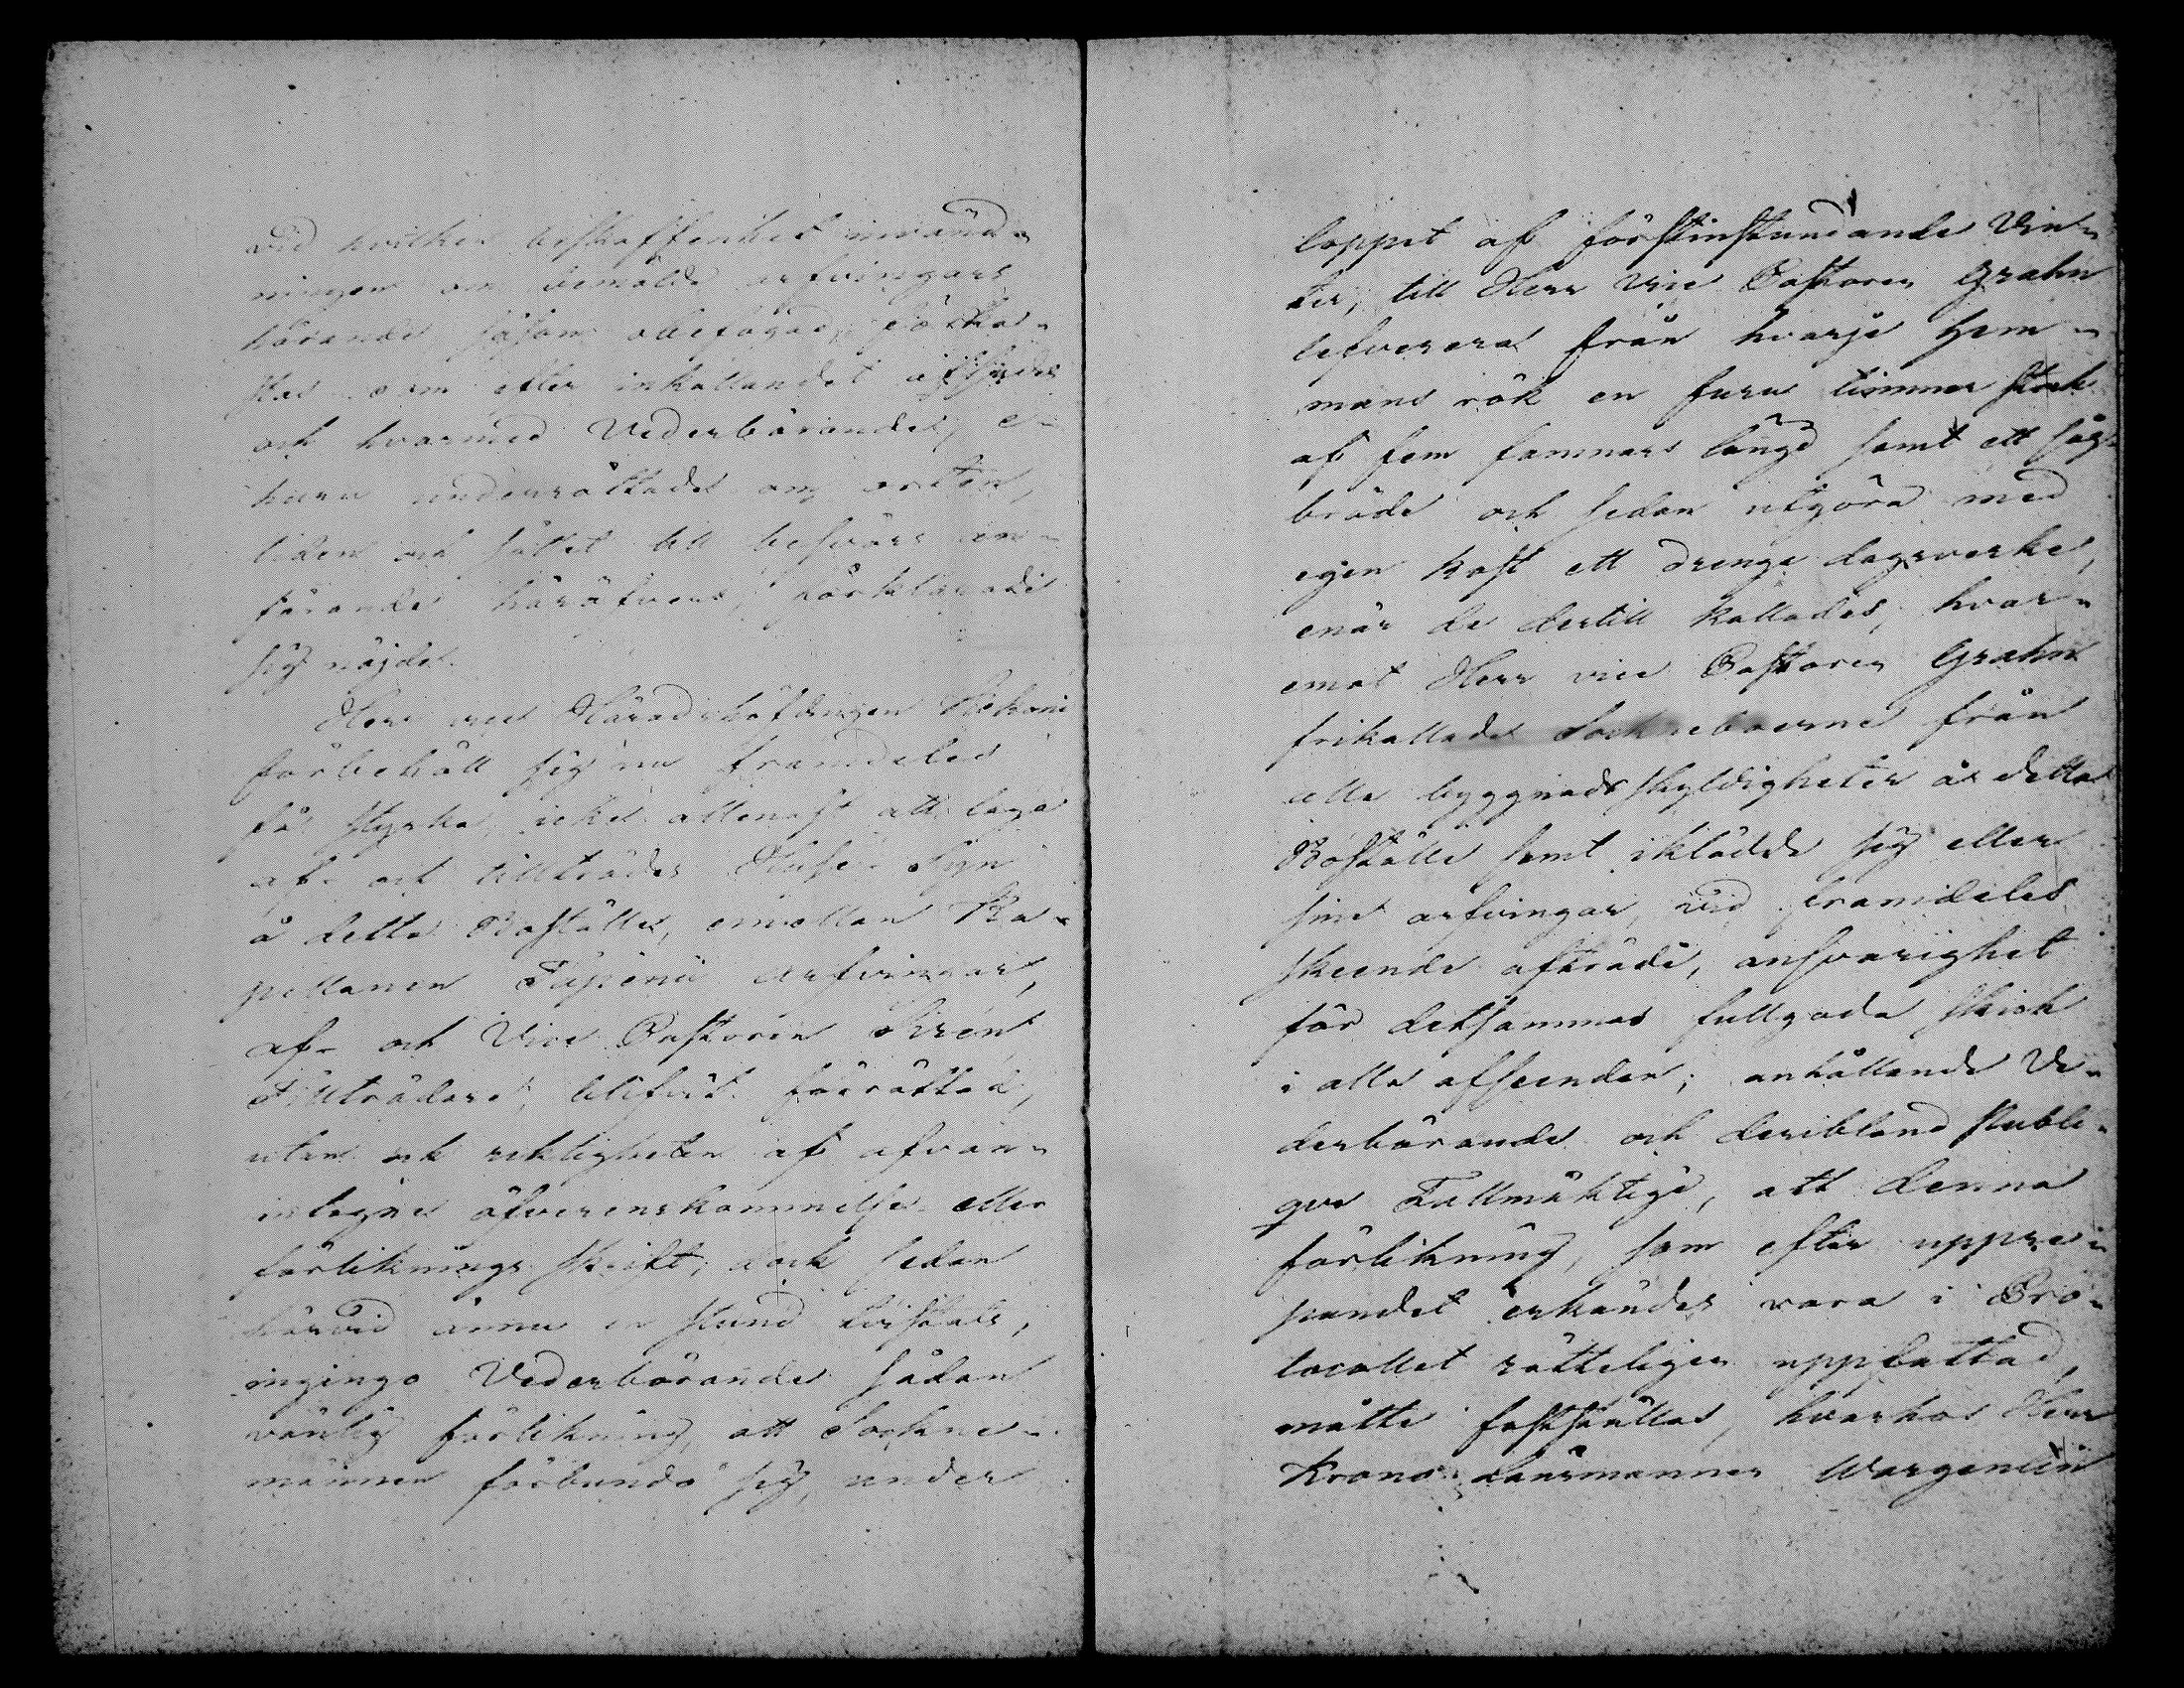 vid hvilken beskaffenhet invänd-
ningen om bemälde arfvingars
hörande, såsom obefogad, förka-
stas som efter inkallandet afsades
och hvarmed Vederbörande, e-
huru underrättade om orten,
tiden och sättet till besvärs an-
förande häröfver, förklarade
sig nöjde.
Herr vice Häradshöfdingen
förbehöll sig nu framdeles
få styrka, icke allenast att laga
af- och tillträdes Huse Syn
å detta Boställe, emellan Ka-
pellanen arfvingar,
af- och Vice Pastoren Sirén
Tillträdare, blifvit förrättad,
utan ock riktigheten af ofvan-
intagne öfverenskommelse eller
förliknings skrift; dock sedan
härvid ännu en stund tvistats,
ingingo Vederbörande sådan
vänlig förlikning, att Sockne-
männen förbundo sig, under
loppet af förstinstundande Vin-
ter, till Herr Vice Pastoren Grahn
lefverera från hvarje Hem-
mans rök en furu timmer stock
af fem famnars längd samt ett såg-
bräde och sedan utgöra med
egen kost ett drenge dagsverke,
enär de dertill kallades, hvar-
emot Herr vice Pastoren Grahn
frikallade Sockneboerne från
alla byggnads skyldigheter å detta
Boställe samt iklädde sig eller
sine arfvingar, vid framdeles
skeende afträde, ansvarighet
för detsammas fullgoda skick
i alla afseenden; anhållande Ve-
derbörande och deribland Publi-
qve Fullmäktige, att denna
förlikning, som efter uppre-
pandet erkändes vara i Pro-
tocollet rätteligen uppfattad,
måtte fastställas, hvarhos Herr
Krono Länsmannen Wargentin